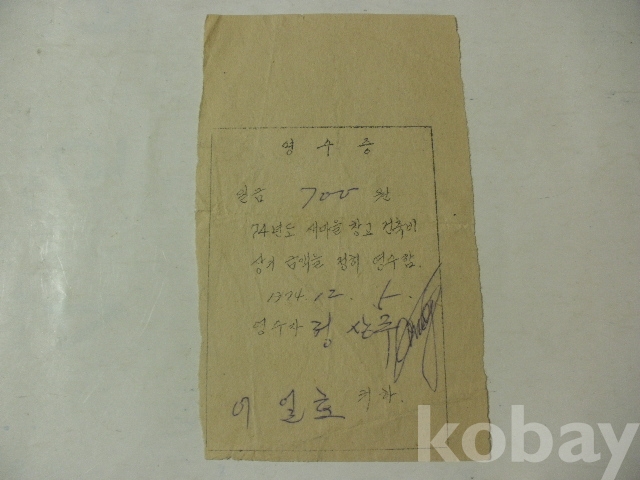 영수증
일금 700 원
74년도 새마을 창고 건축비
상기 금액을 정히 영수함.
1974. 12. 5.
영수자 정산주
이일호 귀하.
kobay